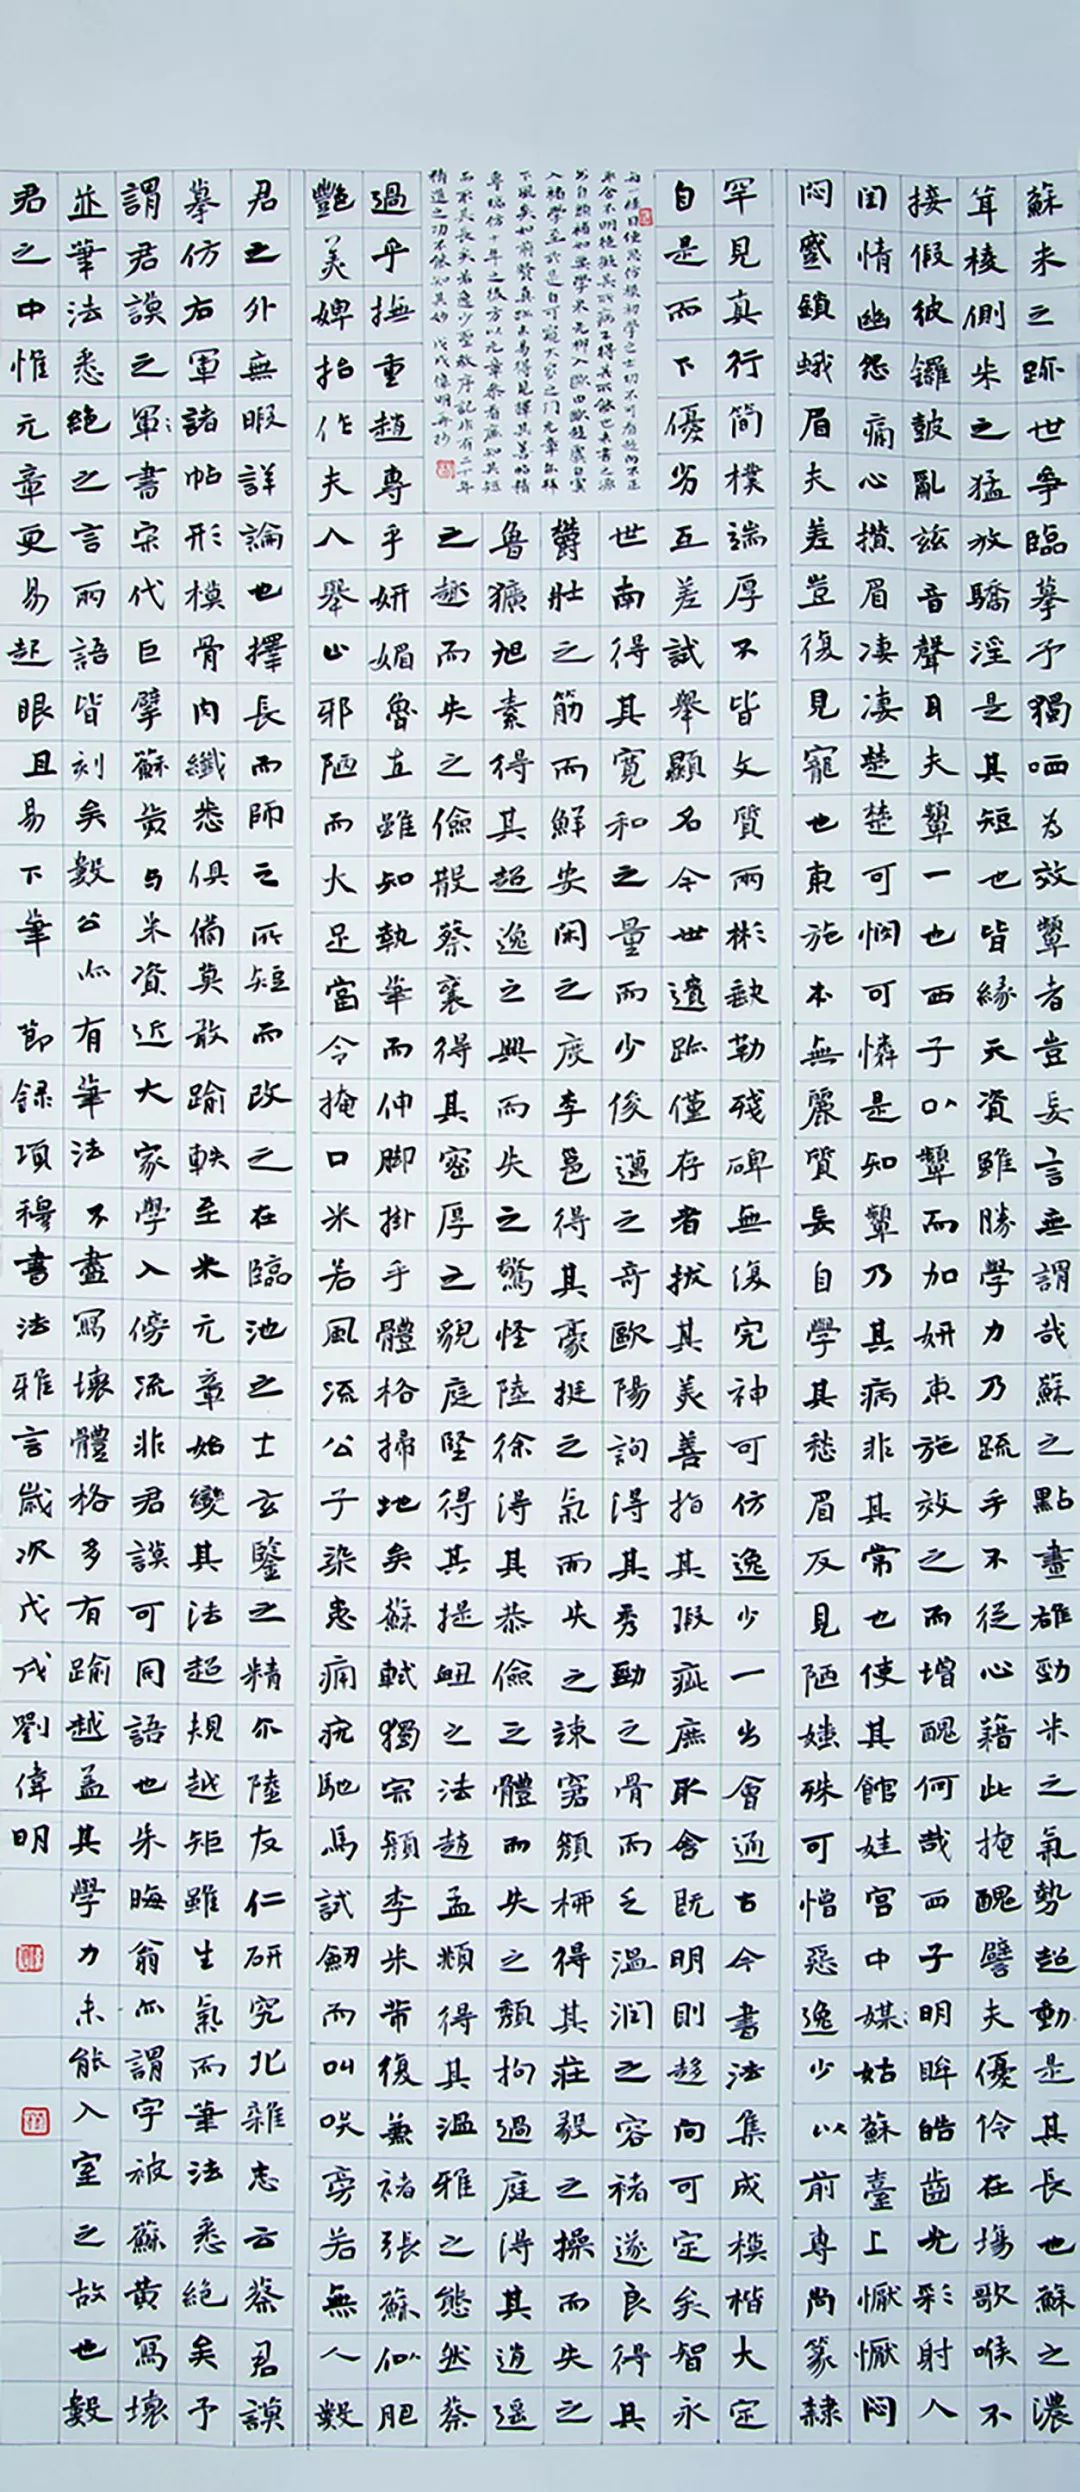 蘇米之跡世爭臨摹予獨哂為效顰者豈妄言無謂哉蘇之點畫雄勁米之氣勢超動是其長也蘇之濃
聳棱側米之猛放驕淫是其短也皆緣天資雖勝學力乃疏手不從心藉此掩醜譬夫優伶在場歌喉不
接假彼鑼鼓亂茲音聲耳夫顰一也西子以顰而加妍東施效之而增醜何哉西子明眸皓齒光彩射人
閨情幽怨痛心攢眉淒淒楚楚可憫可憐是知顰乃其病非其常也使其館娃宮中媒姑蘇臺上懨懨悶
悶蹙鎖蛾眉夫差豈復見寵也東施本無麗質妄自學其愁眉反見陋媸殊可憎惡逸少以前專尚篆隸
罕見真行簡樸端厚不皆文質兩彬缺勒殘碑無復完神可仿逸少一出會通古今書法集成模楷大定
自是而下優劣互差試舉顯名今世遺跡僅存者拔其美善指其瑕疵庶取舍既明則趨向可定矣智永
世南得其寬和之量而少俊邁之奇歐陽詢得其秀勁之骨而乏溫潤之容褚遂良得其
鬱壯之筋而鮮安閑之度李邕得其豪挺之氣而失之竦窘顏柳得其莊毅之操而失之
魯獷旭素得其超逸之興而失之驚怪陸徐得其恭儉之體而失之頹拘過庭得其逍遙
之趣而失之儉散蔡襄得其密厚之貌庭堅得其提衄之法趙孟頫得其溫雅之態然蔡
過乎撫重趙專乎妍媚魯直雖知執筆而伸腳掛手體格掃地矣蘇軾獨宗顏李米芾復兼褚張蘇似肥
艷美婢抬作夫人舉止邪陋而大足當令掩口米若風流公子染患癰疣馳馬試劍而叫笑旁若無人數
君之外無暇詳論也擇長而師之所短而改之在臨池之士玄鑒之精尒陸友仁研究北雜志云蔡君謨
摹仿右軍諸帖形模骨肉纖悉俱備莫敢踰軼至米元章始變其法超規越矩雖生氣而筆法悉絕矣予
謂君謨之軍書宋代巨擘蘇黃与米資近大家學入傍流非君謨可同語也朱晦翁亦謂字被蘇黃寫壞
並筆法悉絕之言兩語皆刻矣數公亦有筆法不盡寫壞體格多有踰越蓋其學力未能入室之故也數
君之中惟元章更易起眼且易下筆 節錄項穆書法雅言歲次戊戌劉偉明